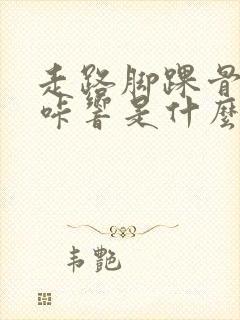 走路脚踝骨
咔响是什麼
韦艳